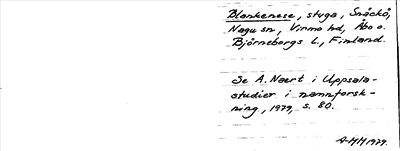 Blankenese, stuga, Snäckö,
Nagu sn, Virmo hd, Åbo o.
Björneborgs l., Finland.
Se A. Nært i Uppsala-
studier i namnforsk-
ning, 1979, s. 80.
AMM 1979.